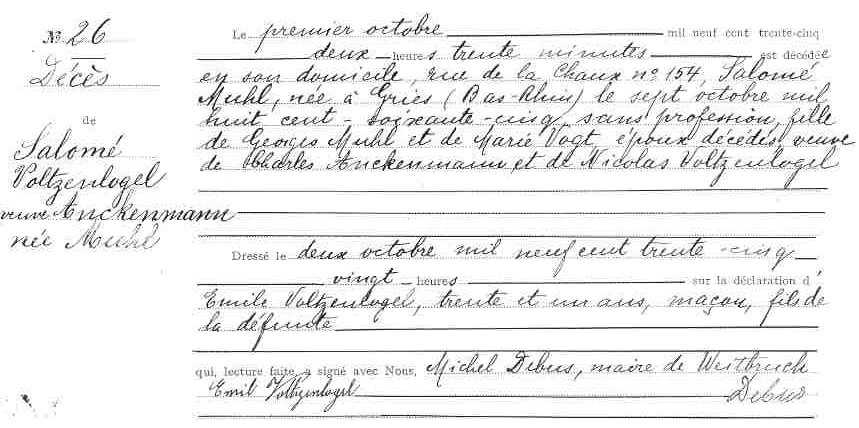 No. 26
Décès
de
Salomé
Voltzenlogel
veuve Anckenmann
née Muhl
Le premier octobre mil neuf cent trente-cinq
deux heures trente minutes est décédée
en son domicile, rue de la Chaux no 154, Salomé
Muhl, née à Gries (Bas-Rhin) le sept octobre mil
huit cent-soixante-cinq, sans profession, fille
de Georges Muhl et de Marie Vogt, époux décédés, veuve
de Charles Anckenmann et de Nicolas Voltzenlogel
Dressé le deux octobre mil neuf cent trente-cinq
vingt heures sur la déclaration d'
Emile Voltzenlogel, trente et un ans, maçon, fils de
la défunte
qui, lecture faite, a signé avec Nous, Michel Debus, maire de Weitbruch
Emil Voltzenlogel Debus